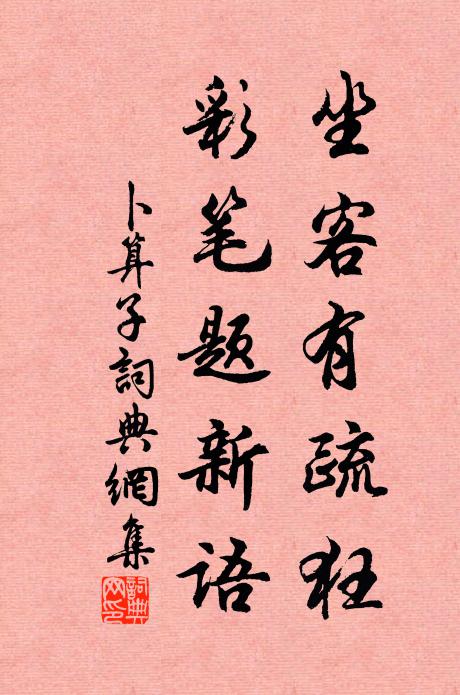 坐客有疏狂
彩笔题新语
卜算子詞典網集
詞典網印